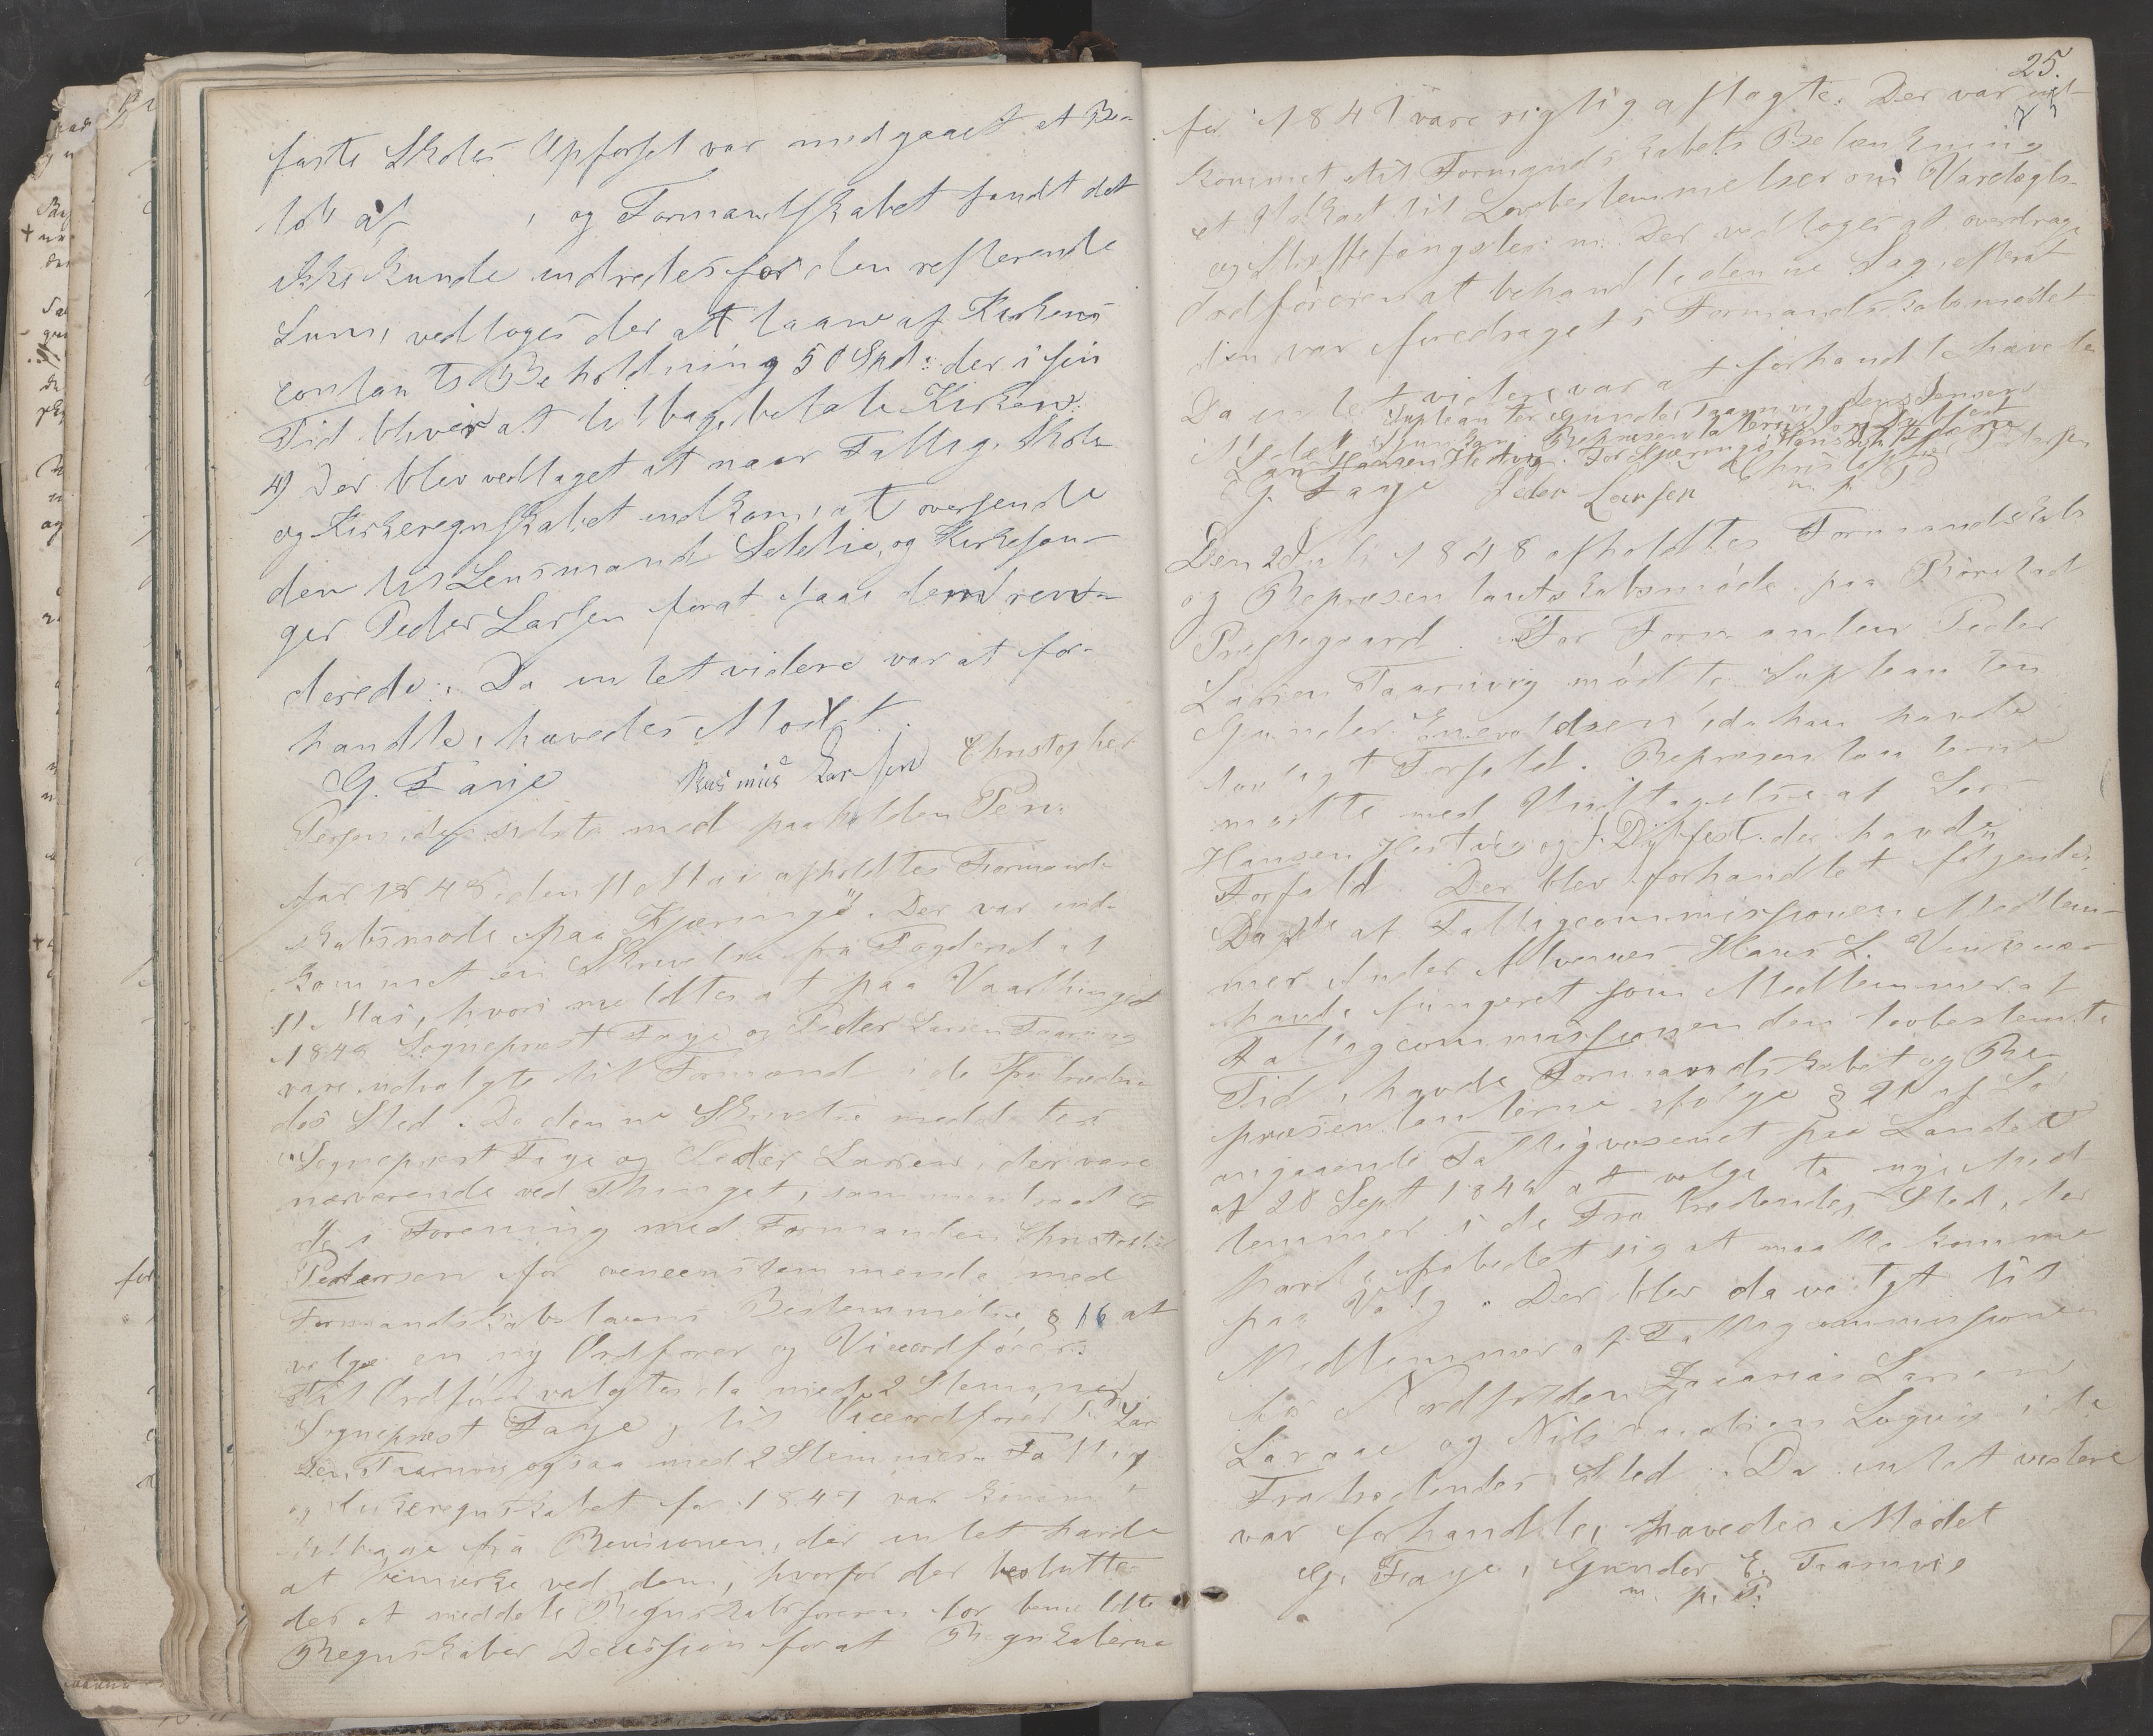 faste Skoles Opførsel var medgaaet et Be-
løb af , og Formandskabet fandt det
ikke kunde udredes for den resterende
Sum, vedtoges der at laane af Kirkens
contante Beholdning 50 Spd: der i sin
Tid bliver at tilbagebetale Kirken.
4) Der blev vedtaget at naar Fattig, Skole
og Kirkeregnskabet indkom, at oversende
dem til Lensmand og Kirkesan-
ger Peder Larsen forat faae dem
derede. Da intet videre var at for-
handle, hævedes Mødet.
G. Faye Rasmus Larsen Christopher
Persen, den sidste med paaholden Pen.
Aar 1848 den 11 Mai afholdtes Formand-
skabsmøde paa Kjæringø. Der var ind-
kommet en Skrivelse fra Fogden
Mai, hvori meldtes at paa Vaarthinget
1848 Sognepræst Faye og Peder Larsen Taarnvig
vare udvalgte til Formænd i de fratræden-
des Sted. Da denne Skrivelse meddeltes
Sognepræst Faye og Peder Larsen, der vare
nærværende ved Thinget, sammentraadte
de i Forening med Formanden Christopher
Pedersen for overeensstemmende med
Formandskabslovens Bestemmelse § 16 at
vælge en ny Ordfører og Viceordfører.
Til Ordfører valgtes da med 2 Stemmer
Sognepræst Faye, til Viceordfører P. Lar
sen Taarnvig ogsaa med 2 Stemmer. Fattig
og Kirkeregnskabet for 1847 var kommet
tilbage fra Revisionen, der intet havde
at bemærke ved dem, hvorfor der beslutte-
des at meddele Regnskabsføreren for bemeldte
Regnskaber Decission for at Regnskaberne
25.
for 1847 vare rigtig aflagte. Der var ind-
kommet til Formandskabets Betænkning
et Udkast til Lovbestemmelser om Vardøgls-
og m. Der vedtoges at overdrage
Ordføreren at behandle denne Sag, efterat
den var foredraget i Formandskabsmødet
Da intet videre var at forhandle hævedes
Mødet. Supleanter Gunder Taarnvig, Jens Jensen
Repræsentanterne
Lars Hansen Hestvig. For Kjæringø Hans
G. Faye Peder Larsen Christopher Pedersen
m. p. P
Den 2 Juli 1848 afholdtes Formandskabs
og Repræsentantskabsmøde paa Rørstad
Præstegaard. For Formanden Peder
Larsen Taarnvig mødte Supleanten
Gunder Enevoldsen, da han havde
lovligt Forfald. Repræsentanterne
mødte med Undtagelse af Lars
Hansen Hestvig og J. Dybfest der havde
Forfald. Der blev forhandlet følgende,
Da 2de af Fattigcommissionen Medlem-
mer Ander Alvenes, Hans L. Vinkenæs
havde fungeret som Medlemmer af
Fattigcommissionen den lovbestemte
Tid, havde Formandskabet og Re-
præsentanterne ifølge § 21 af Lov
angaaende Fattigvæsenet paa Landet
af 20 Sept 1845 at vælge to nye Med-
lemmer i de Fratrædendes Sted, der
havde frabedet sig at maatte komme
paa Valg. Der blev da valgt til
Medlemmer af Fattigcommissionen
for Nordfolden Zacarias Larsen
og Nils Løgvig i de
Fratrædendes Sted. Da intet videre
var forhandle, hævedes Mødet
G. Faye, Gunder E. Taarnvig
m. p. P.